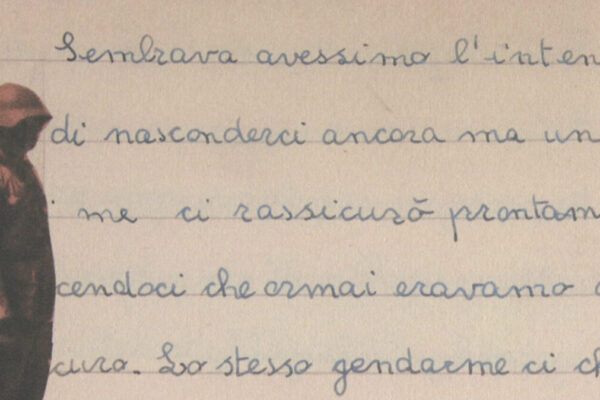 Sembrava avessimo l'inten
di nasconderci ancora ma un
i me ci rassicurò prontam
cendoci che ormai eravamo
curo. Lo stesso gendarme ci ch